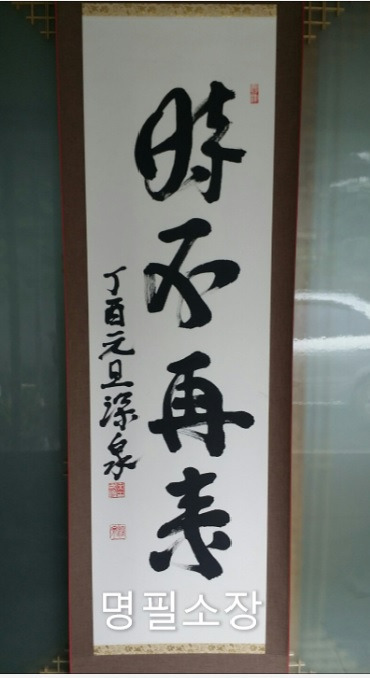 時不再来
丁酉元旦深泉
명필소장